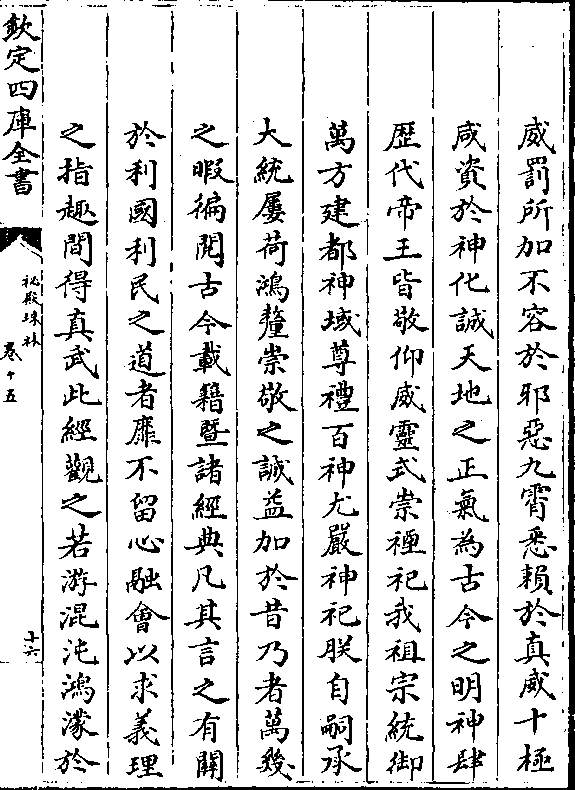 威罰所加不容於邪惡九霄悉賴於真威十極
咸資於神化誠天地之正氣為古今之明神肆
歴代帝王皆敬仰威靈式崇禋祀我祖宗統御
萬方建都神域尊禮百神尤嚴神祀朕自嗣承
大統屢荷鴻釐崇敬之誠益加於昔乃者萬幾
之暇徧閲古今載籍暨諸經典凡其言之有關
於利國利民之道者靡不留心融會以求義理
之指趣間得真武此經觀之若游混沌鴻濛於
欽定四庫全書
秘殿珠林
卷十五
十六